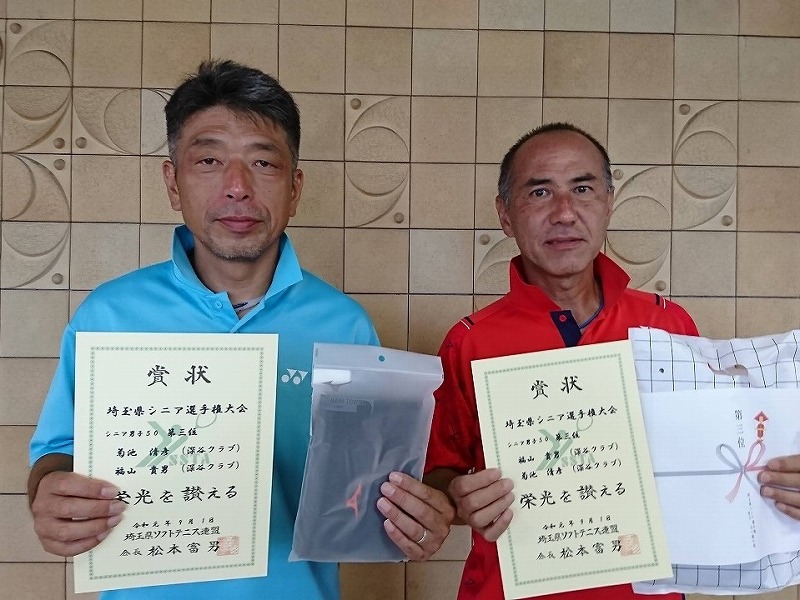 賞状
埼玉県シニア選手権大会
シニア男子50 第三位
菊池 清彦 (深谷クラブ)
福山 貴男 (深谷クラブ)
栄光を讃える
令和元年9月1日
埼玉県ソフトテニス連盟
会長 松本富男
賞状
埼玉県シニア選手権大会
シニア男子50 第三位
福山 貴男 (深谷クラブ)
菊池 清彦 (深谷クラブ)
栄光を讃える
令和元年9月1日
埼玉県ソフトテニス連盟
会長 松本富男
第三位